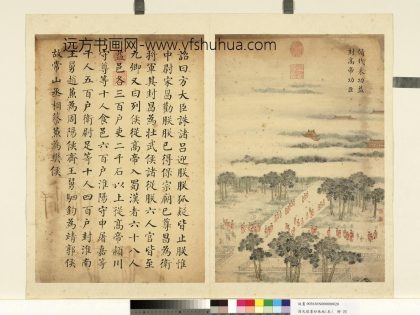 远方书画网-www.yfshuhua.com
脩代來功益
封高帝功臣
詔曰方大臣誅諸呂迎朕朕狐疑皆止朕惟
中尉宋昌勸朕朕已得保宗廟已尊昌為衛
將軍其封昌為壯武侯諸從朕六人官皆至
九卿又曰列侯從高帝入蜀漢者六十八人
益邑各三百戶吏二千石以上從高帝潁川
守尊等十人食邑六百戶淮陽守申屠嘉等
十人五百戶衛尉足等十人四百戶封淮南
王舅趙兼為周陽侯齊王舅駟鈞為靖郭侯
故常山丞相蔡兼為樊侯